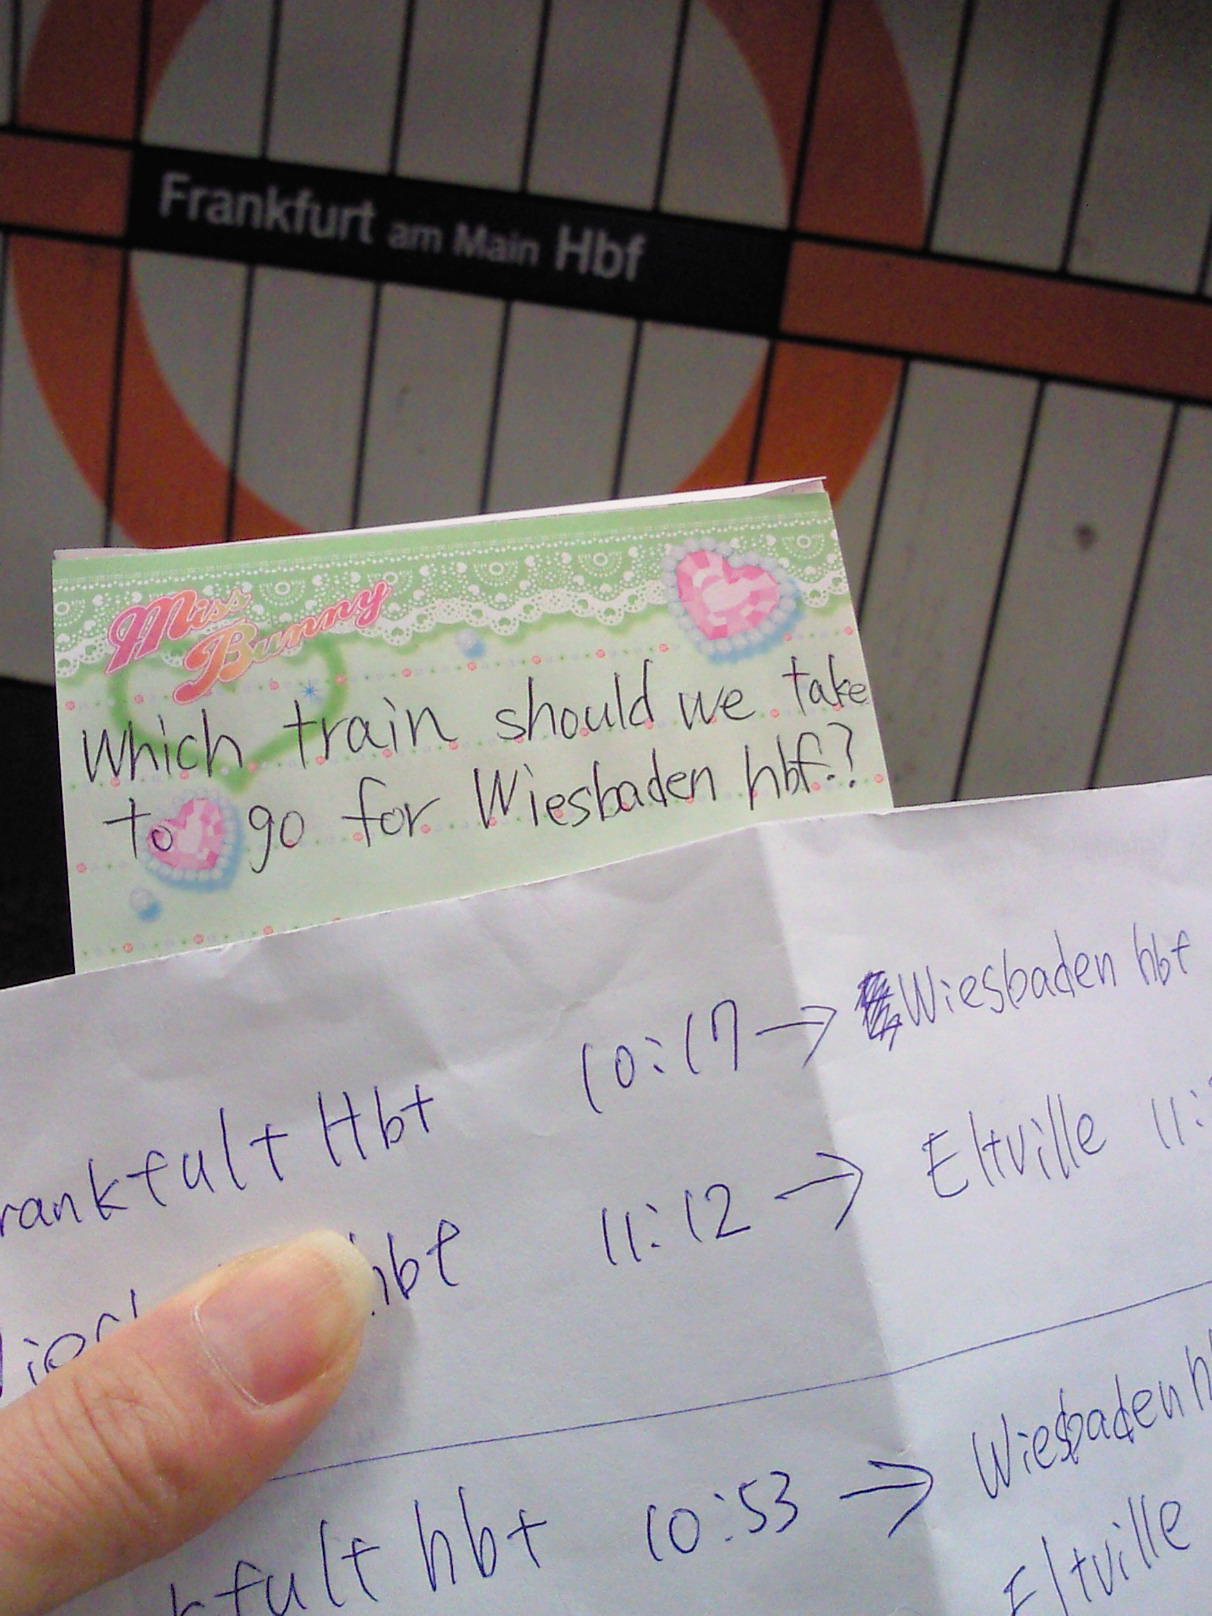 Frankfurt am Main Hbf
Miss
Bunny
Which train should we take
to go for Wiesbaden hbf.?
rankfult Hbt 10:17 → Wiesbaden hbf
hbf 11:12 → Eltville 11:
kfult hbt 10:53 → Wiesbaden h
Eltville